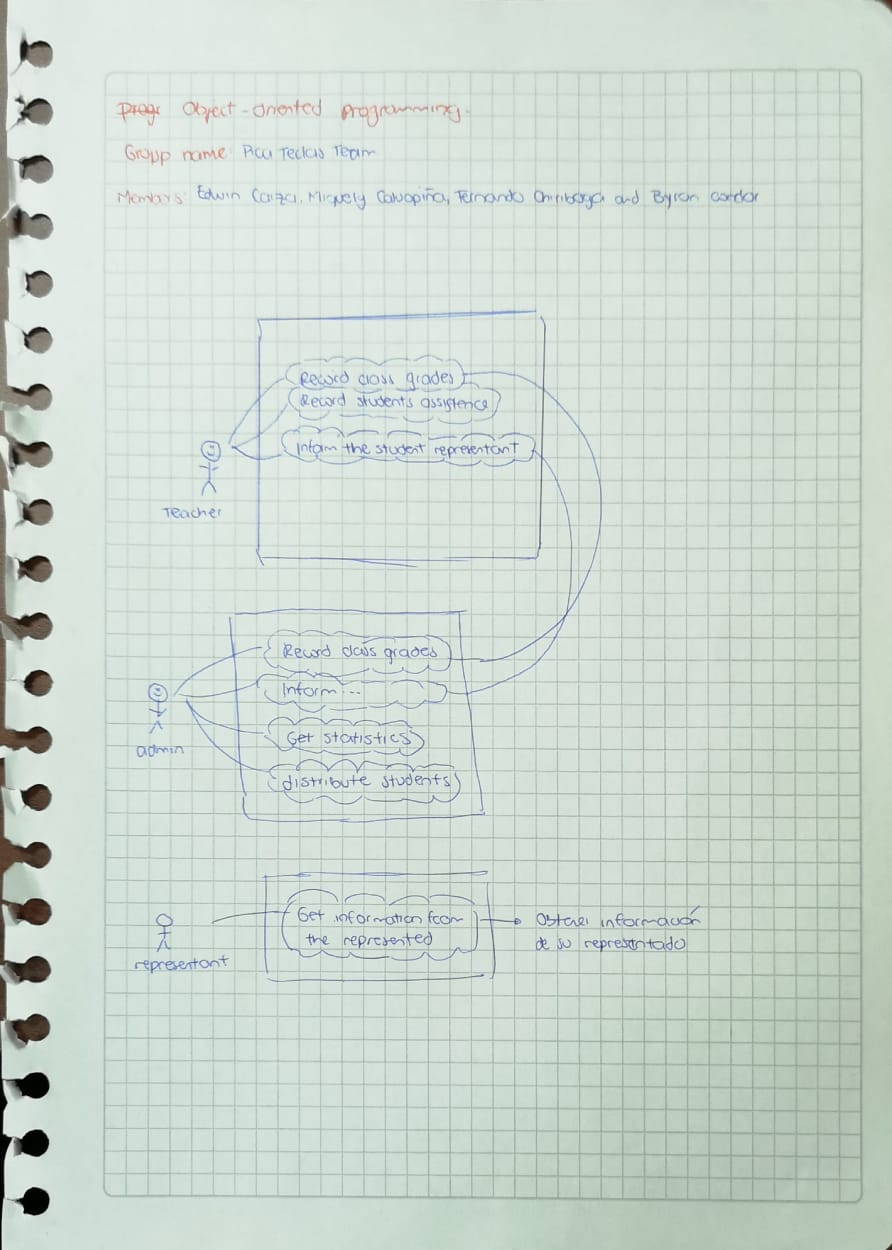 Object-oriented programming.
Group name: Pica Teclas Team
Members: Edwin Caiza, Miquely Calvopiña, Fernando Chiriboga and Byron condor
Record class grades
Record students assistence
Inform the student representant
Teacher
Record class grades
Inform...
Get statistics
admin
distribute students
Get information from
the represented
Obtener información
de su representado
representant